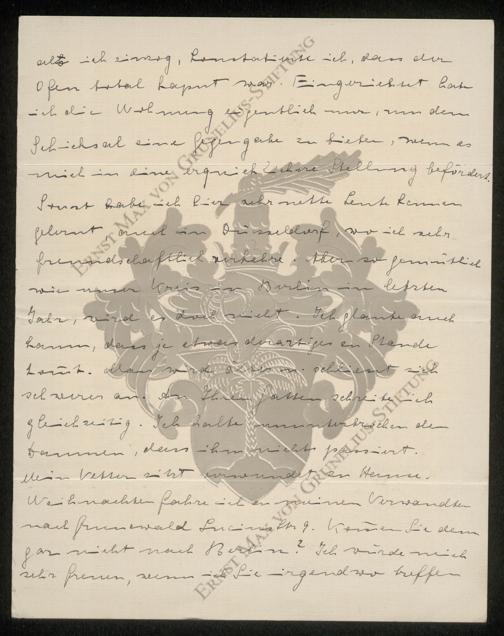 als ich einzog, konstatierte ich, dass der
Ofen total kaput war. Eingerichtet habe
ich die Wohnung eigentlich nur, um dem
Schicksal eine Gegengabe zu bieten, wenn es
mich in eine erquicklichere Stellung befördert.
Sonst habe ich hier sehr nette Leute kennen
gelernt auch in Düsseldorf, wo ich sehr
freundschaftlich verkehre. Aber so gemütlich
wie unser Kreis in Berlin im letzten
Jahr, wird es doch nicht. Ich glaube auch
kaum, dass je etwas derartiges zu Stande
kommt. Man wird älter u. schliesst sich
schwerer an. An Ihren Gatten schreibe ich
gleichzeitig. Ich halte ununterbrochen den
Daumen, dass ihm nichts passiert.
Mein Vetter sitzt verwundet zu Hause.
Weihnachten fahre ich zu meinen Verwandten
nach Grunewald Str. 9. Kommen Sie denn
gar nicht nach Berlin? Ich würde mich
sehr freuen, wenn ich Sie irgendwo treffen
ERNST MAX VON GRUNELIUS-STIFTUNG
ERNST MAX VON GRUNELIUS-STIFTUNG